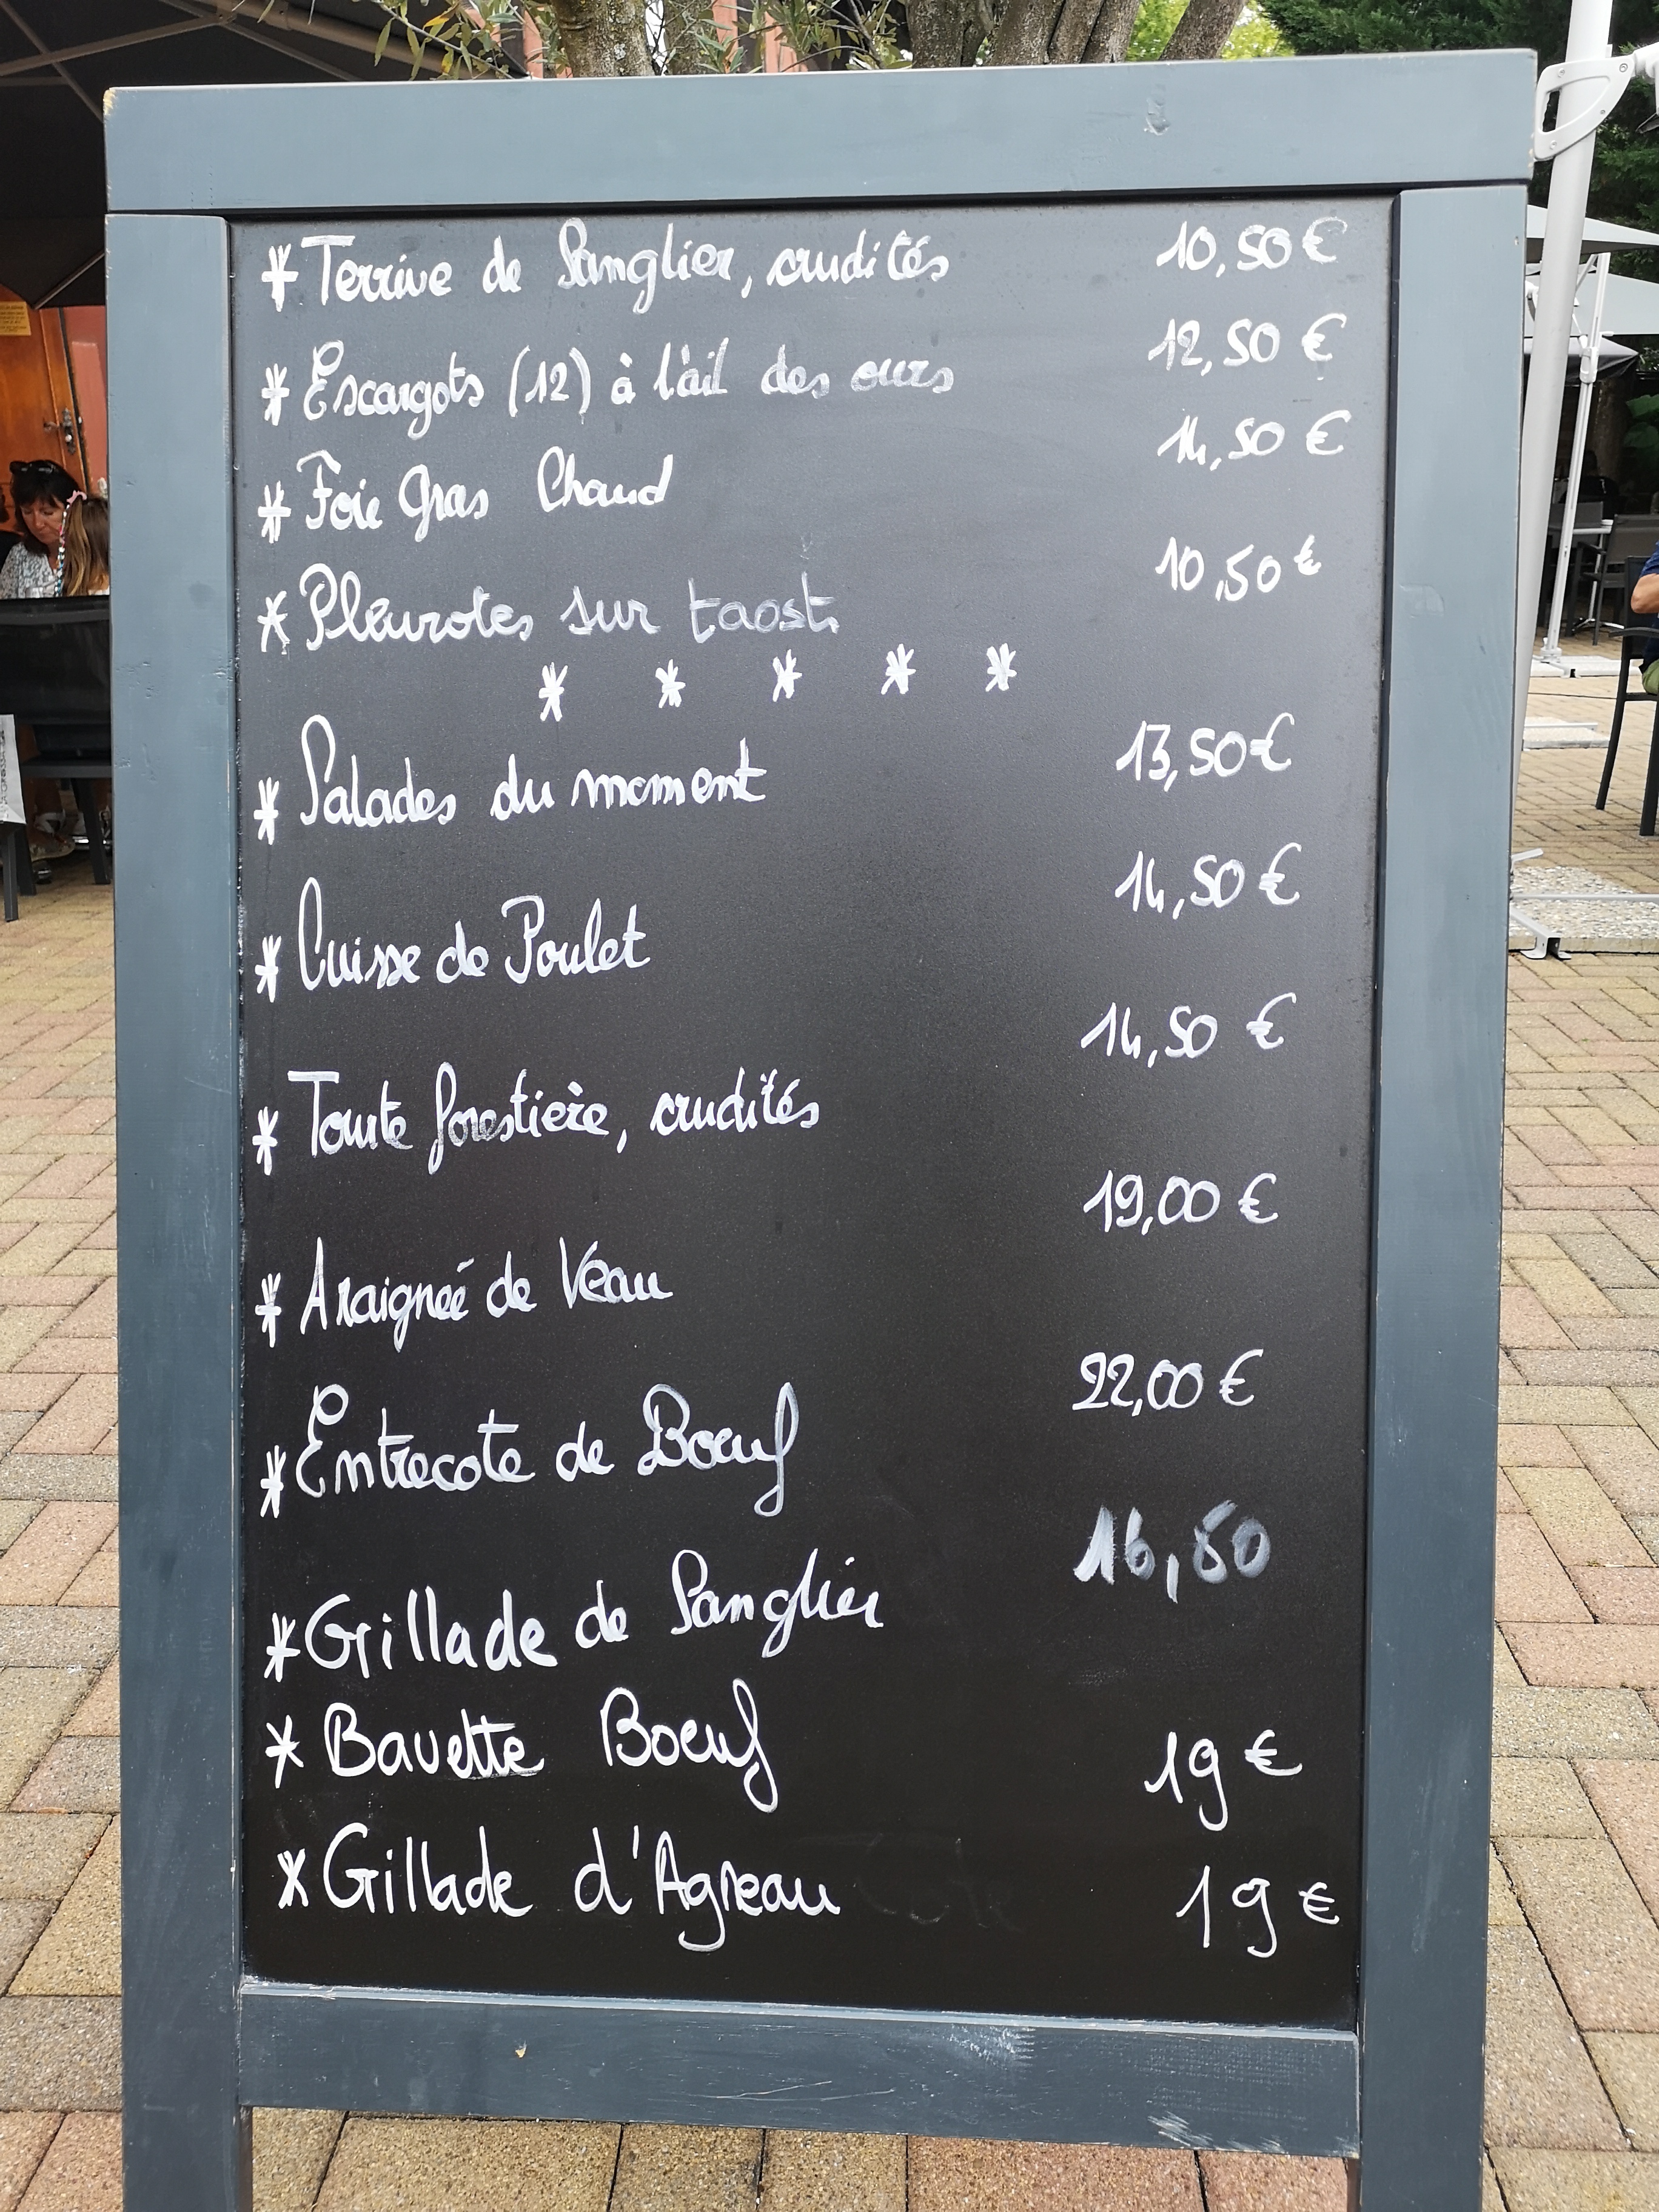 * Terrine de Sanglier, crudités 10,50 €
* Escargots (12) à l'ail des ours 12,50 €
* Foie Gras Chaud 14,50 €
* Pleurotes sur taost 10,50 €
* * * * *
* Salades du moment 13,50 €
* Cuisse de Poulet 14,50 €
* Tourte forestière, crudités 14,50 €
* Araignée de Veau 19,00 €
* Entrecote de Boeuf 22,00 €
* Grillade de Sanglier 16,50
* Bavette Boeuf 19 €
* Grillade d'Agneau 19 €